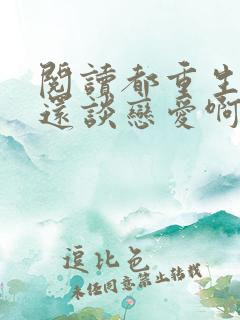 閱讀都重生
還談戀愛啊
逗比色
未經同意禁止轉載